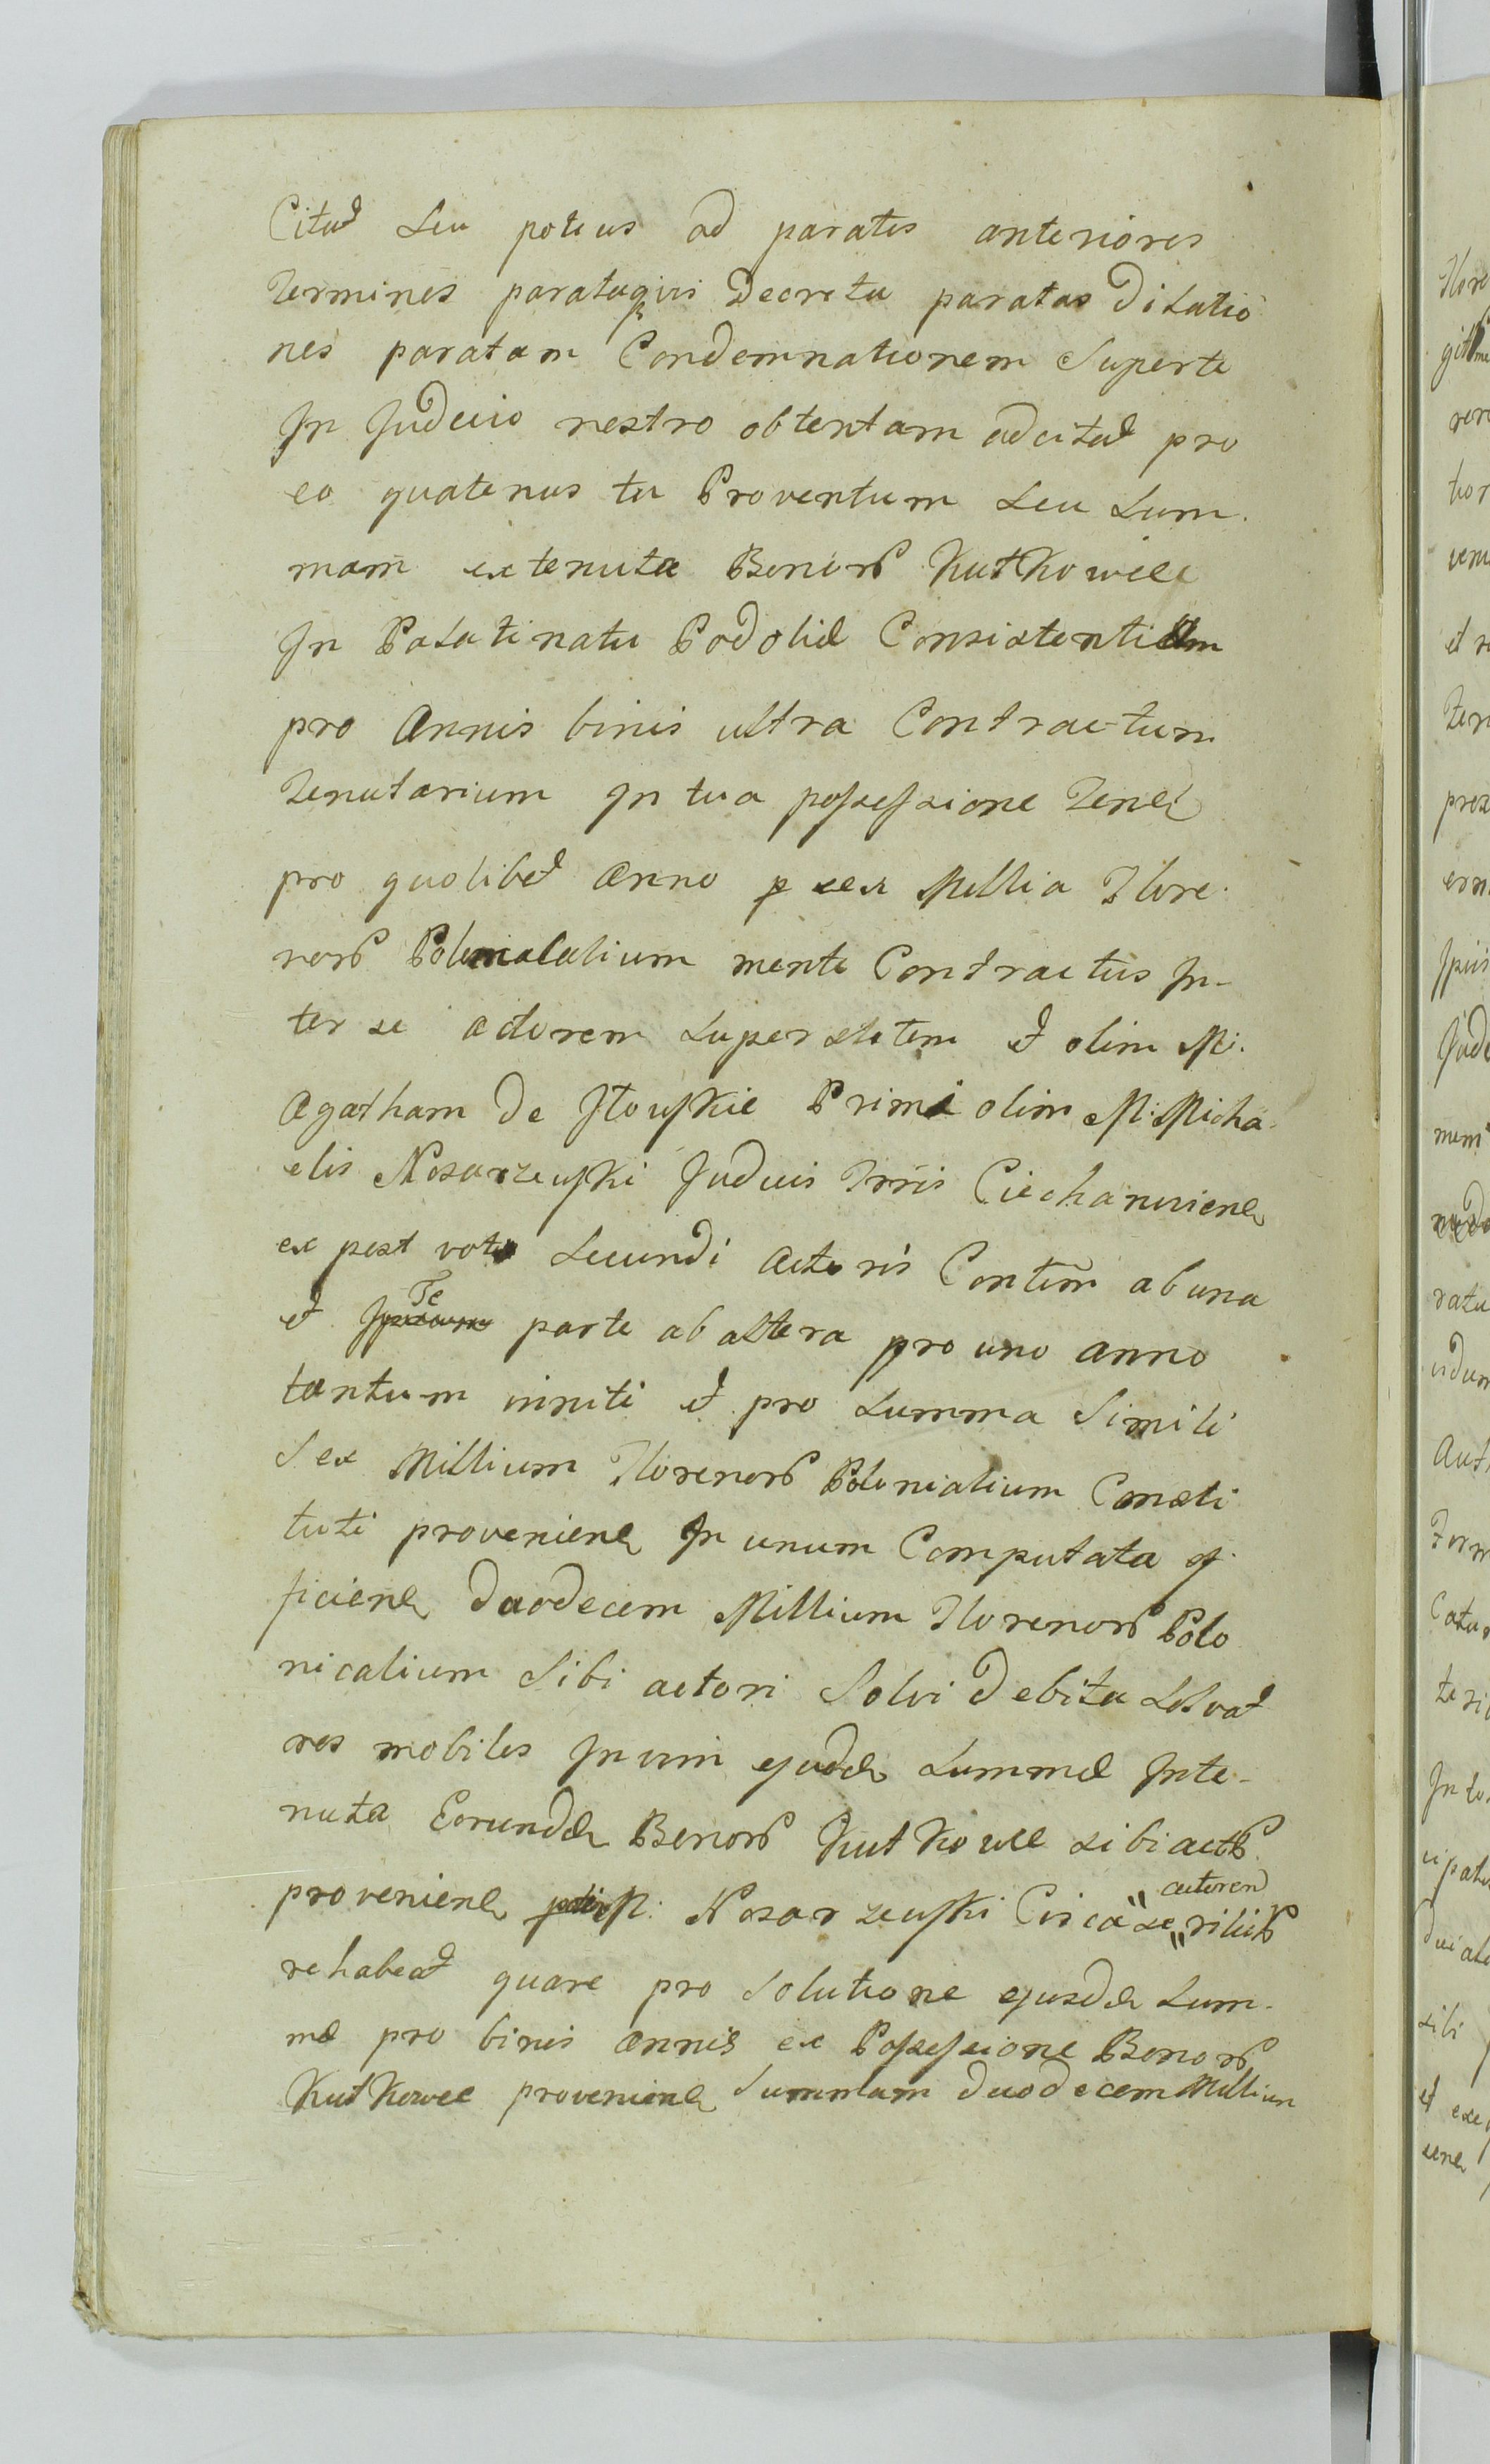 Citat Seu potius ad paratos anteriores
Terminos parataqui Decreta paratas Dilatio
nes paratam Condemnationem Superte
In Judicio nostro obtentam adcitat pro
eo quatenus tu Proventum Seu Sum.
mam ex tenuta Bonor Kutkowce
In Palatinatu Podoliæ Consistentium
pro Annis binis ultra Contractum
Tenutarium In tua possessione Tenen
pro quolibet Anno p sex Millia Flore.
nor Polonicalium mente Contractus In-
ter se Actorem Superstitem et olim M.
Agatham de Iłowskie Primi olim M. Micha
elis Nosarzewski Judicis Trris Ciechanoviens
ex post voto Secundi Actoris Contem ab una
et Te parte ab altera pro uno anno
tantum initi et pro Summa Simili
Sex Millium Florenor Polonialium Consti
tuti provenien In unum Computata ef
ficien Duodecem Millium Florenor Polo
nicalium Sibi actori Solvi Debita Solvat
res mobiles In vim ejusdem Summæ Inte-
nuta Eorundem Bonor Kutkowce sibi actor
provenien M. Nosarzewski Circa se actorem relict
rehabeat quare pro Solutione ejusdem Sum-
mæ pro binis annis ex Possessione Bonor
Kutkowce provenien Summam Duodecem Millium
Flore
git